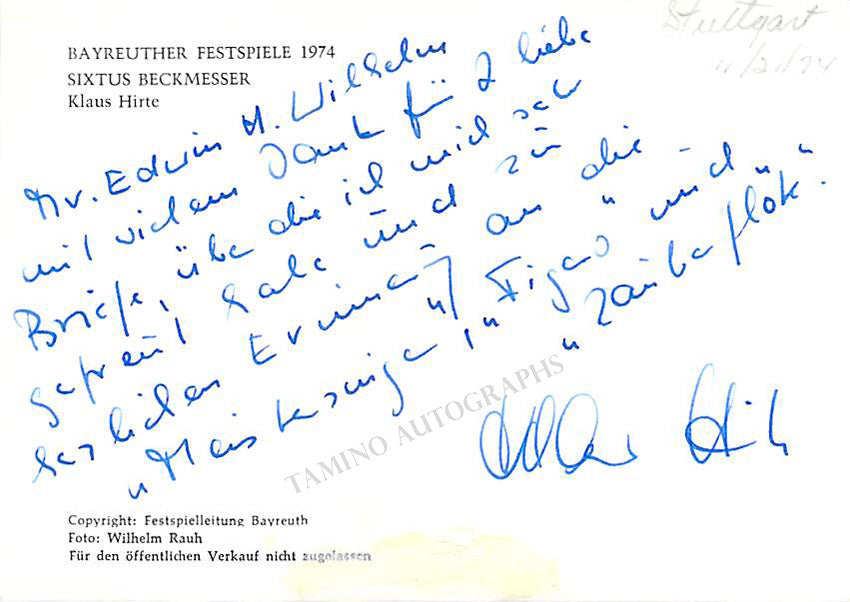 BAYREUTHER FESTSPIELE 1974
SIXTUS BECKMESSER
Klaus Hirte
Stuttgart
11/21/74
Mr. Edwin H. Wilhelm
mit vielem Dank für 2 liebe
Briefe, über die ich mich sehr
gefreut habe und zur
herzlichen Erinnerung an die
„Meistersinger", „Figaro" und
„Zauberflöte".
Klaus Hirte
TAMINO AUTOGRAPHS
Copyright: Festspielleitung Bayreuth
Foto: Wilhelm Rauh
Für den öffentlichen Verkauf nicht zugelassen